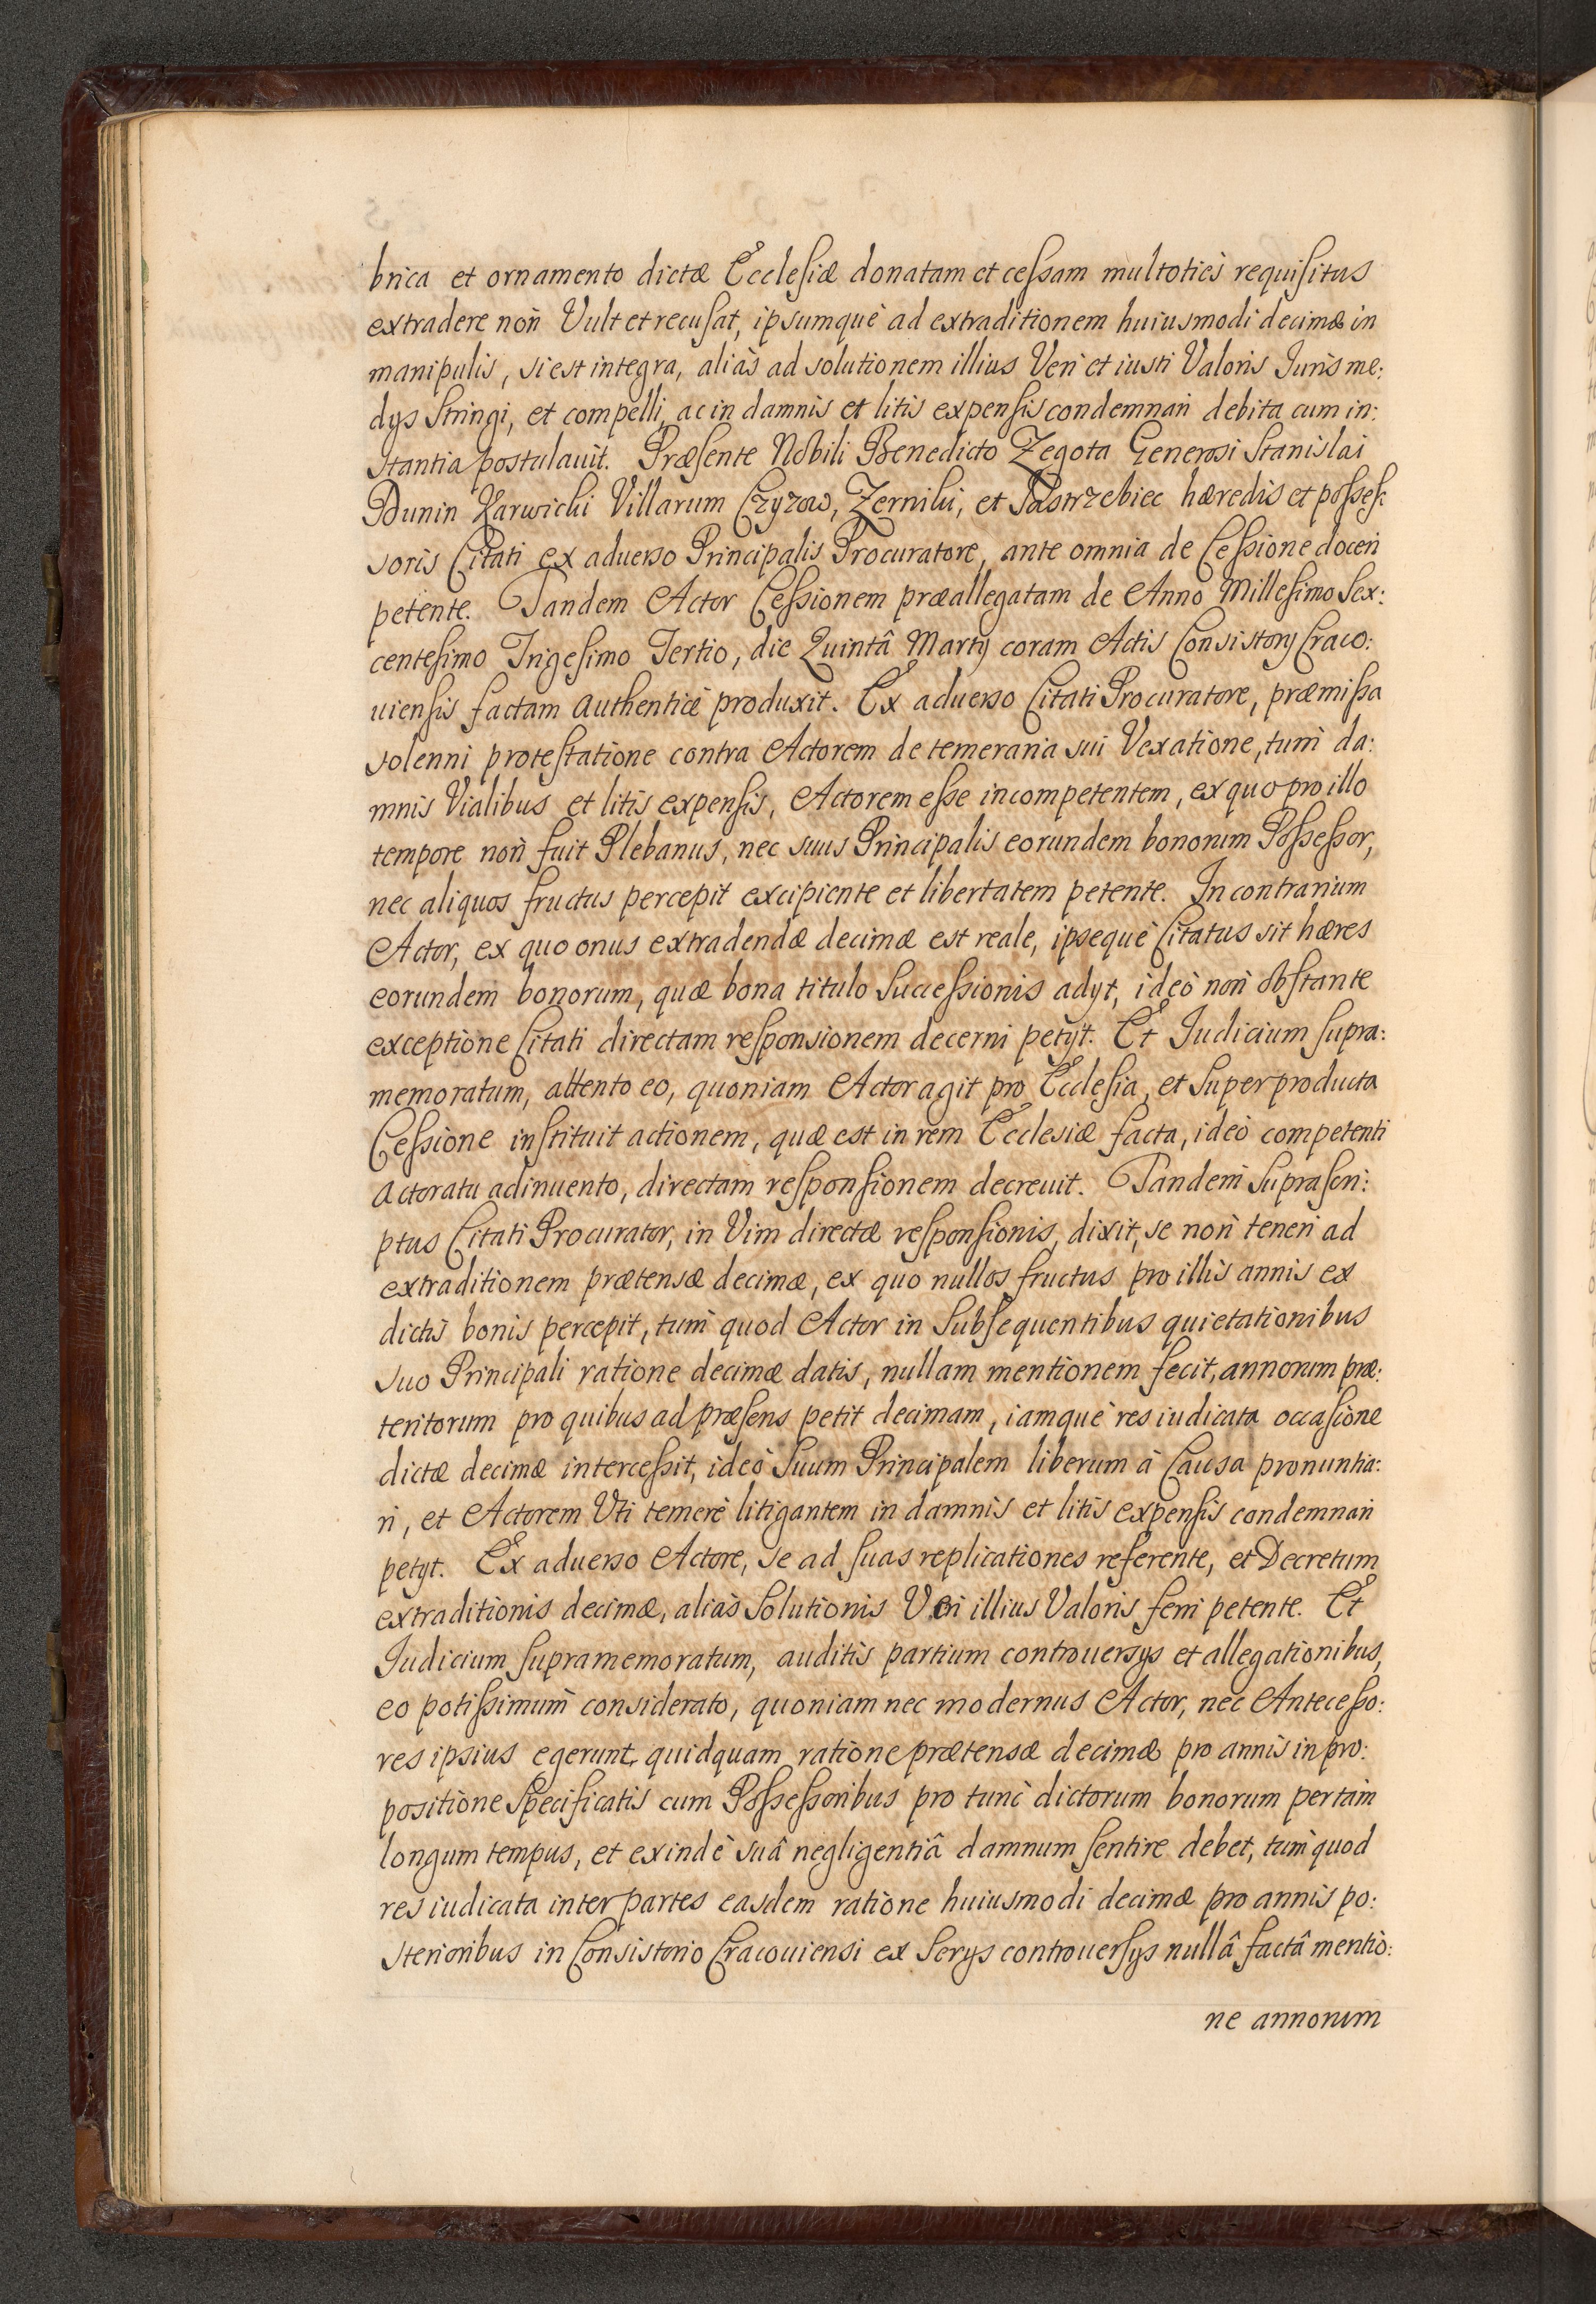 brica et ornamento dictæ Ecclesiæ donatam et cessam multoties requisitus
extradere non Vult et recusat, ipsumque ad extraditionem huiusmodi decimæ in
manipulis, si est integra, alias ad solutionem illius Veri et iusti Valoris Iuris me:
dys stringi, et compelli, ac in damnis et litis expensis condemnari debita cum in:
stantia postulauit. Præsente Nobili Benedicto Zegota Generosi Stanislai
Dunin Karwicki Villarum Czyzow, Zerniki, et Jastrzebiec hæredis et posses:
soris Citati ex aduerso Principalis Procuratore, ante omnia de Cessione doceri
petente. Tandem Actor Cessionem præallegatam de Anno Millesimo Sex:
centesimo Trigesimo Tertio, die Quintâ Marty coram Actis Consistory Craco:
uiensis factam authenticè produxit. Ex aduerso Citati Procuratore, præmissa
solenni protestatione contra Actorem de temeraria sui Vexatione, tum da:
mnis Vialibus et litis expensis, Actorem esse incompetentem, ex quo pro illo
tempore non fuit Plebanus, nec suus Principalis eorundem bonorum Possessor,
nec aliquos fructus percepit excipiente et libertatem petente. In contrarium
Actor, ex quo onus extradendæ decimæ est reale, ipseque Citatus sit hæres
eorundem bonorum, quæ bona titulo Successionis adyt, ideò non obstante
exceptione Citati directam responsionem decerni petyt. Et Iudicium supra:
memoratum, attento eo, quoniam Actor agit pro Ecclesia, et super producta
Cessione instituit actionem, quæ est in rem Ecclesiæ facta, ideò competenti
actoratu adinuento, directam responsionem decreuit. Tandem Suprascri:
ptus Citati Procurator, in Vim directæ responsionis, dixit, se non teneri ad
extraditionem prætensæ decimæ, ex quo nullos fructus pro illis annis ex
dictis bonis percepit, tum quod Actor in Subsequentibus quietationibus
suo Principali ratione decimæ datis, nullam mentionem fecit, annorum præ:
teritorum pro quibus ad præsens petit decimam, iamque res iudicata occasione
dictæ decimæ intercessit, ideò Suum Principalem liberum à Causa pronuntia:
ri, et Actorem Uti temerè litigantem in damnis et litis expensis condemnari
petyt. Ex aduerso Actore, se ad suas replicationes referente, et Decretum
extraditionis decimæ, alias Solutionis Veri illius Valoris ferri petente. Et
Iudicium supramemoratum, auditis partium controuersys et allegationibus,
eo potissimum considerato, quoniam nec modernus Actor, nec Antecesso:
res ipsius egerunt quidquam ratione prætensæ decimæ pro annis in pro:
positione Specificatis cum Possessoribus pro tunc dictorum bonorum per tam
longum tempus, et exinde suâ negligentiâ damnum sentire debet, tum quod
res iudicata inter partes easdem ratione huiusmodi decimæ pro annis po:
sterioribus in Consistorio Cracouiensi ex Serys controuersys nullâ factâ mentio:
ne annorum